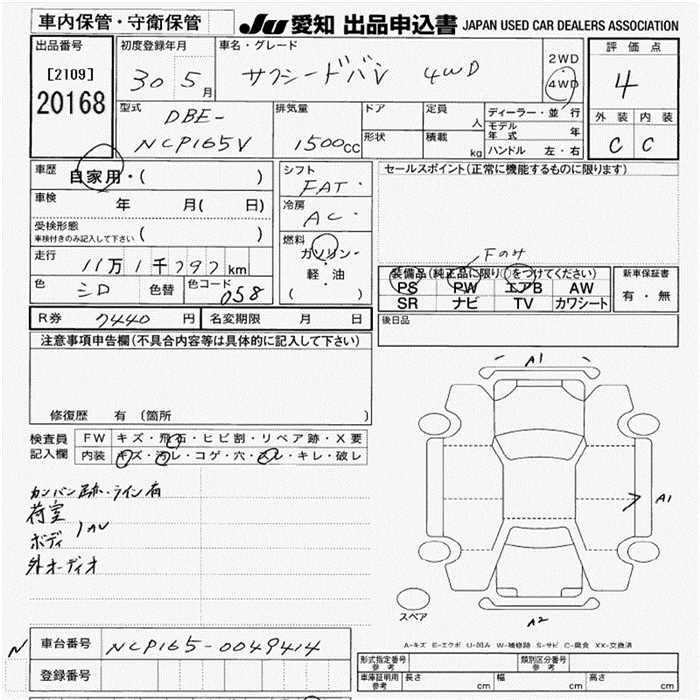 車内保管・守衛保管
JU 愛知 出品申込書 JAPAN USED CAR DEALERS ASSOCIATION
出品番号
[2109]
20168
初度登録年月
30 5 月
車名・グレード
サクシードバン 4WD
2WD
・
4WD
評価点
4
外装 内装
C C
型式
DBE-
NCP165V
排気量
1500cc
ドア
形状
定員
人
積載
kg
ディーラー・並行
モデル年式 年
ハンドル 左・右
車歴
自家用・( )
車検
年 月( 日)
受検形態
車検付きのみ記入して下さい ( )
走行
11万1千797km
色 シロ 色替 色コード 058
シフト
FAT
冷房
AC
燃料
ガソリン・
軽・油
( )
セールスポイント(正常に機能するものに限ります)
Fのみ
装備品(純正品に限り○をつけてください)
PS PW エアB AW
SR ナビ TV カワシート
新車保証書
有・無
R券 7440 円 名変期限 月 日
後日品
注意事項申告欄(不具合内容等は具体的に記入して下さい)
修復歴 有 (箇所 )
検査員
記入欄
FW キズ・飛石・ヒビ割・リペア跡・X要
内装 キズ・汚レ・コゲ・穴・スレ・キレ・破レ
カンバン跡・ライン有
荷室
ボディ
外オーディオ
A1
A1
スペア
A2
A-キズ E-エクボ U-凹み W-補修跡 S-サビ C-腐食 XX-交換済
N
車台番号 NCP165-0049414
登録番号
形式指定番号
参考
類別区分番号
参考
車庫証明用
参考
長さ cm 幅 cm 高さ cm